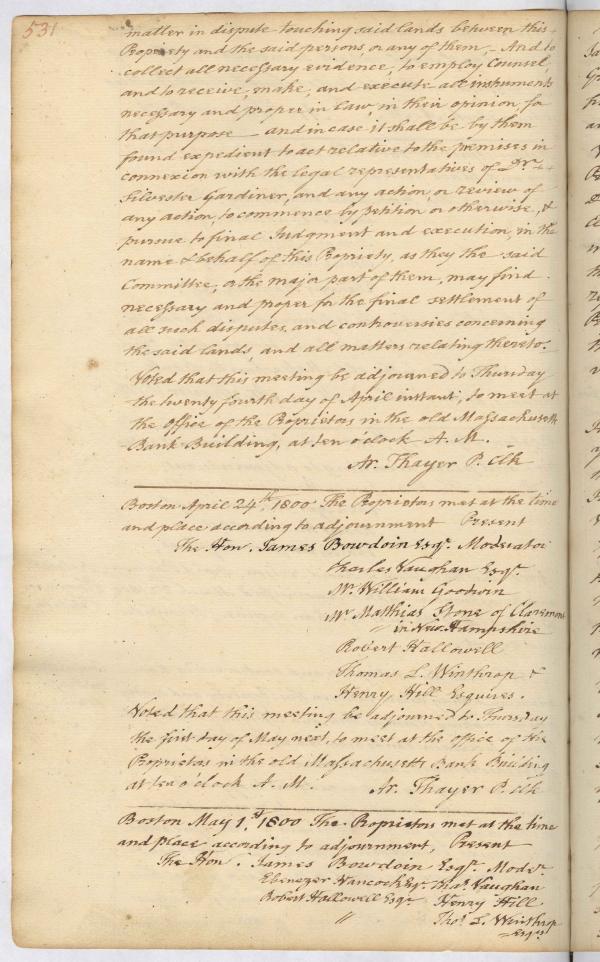 531
matter in dispute touching said lands between this
Propriety and the said persons, or any of them, – And to
collect all necessary evidence, to employ Counsel
and to receive, make, and execute all instruments
necessary and proper in Law, in their opinion, for
that purpose – and in case it shall be by them
found expedient to act relative to the premises in
connexion with the legal representatives of Dr.
Silvester Gardiner, and any action, or review of
any action, to commence by petition or otherwise, &
pursue to final Judgment and execution, in the
name & behalf of this Propriety, as they the said
Committee, or the major part of them, may find
necessary and proper for the final settlement of
all such disputes, and controversies concerning
the said lands, and all matters relating thereto.
Voted that this meeting be adjourned to Thursday
the twenty fourth day of April instant, to meet at
the office of the Proprietors in the old Massachusetts
Bank Building, at ten o'clock A. M.
Ar. Thayer P. Clk
Boston April 24th. 1800 The Proprietors met at the time
and place according to adjournment Present
The Hon. James Bowdoin Esqr. Moderator
Charles Vaughan Esqr.
Mr. William Goodwin
Mr. Matthias Stone of Claremont
" in New Hampshire
Robert Hallowell
Thomas L. Winthrop &
Henry Hill Esquires.
Voted that this meeting be adjourned to Thursday
the first day of May next, to meet at the office of the
Proprietors in the old Massachusetts Bank Building
at ten o'clock A. M. Ar. Thayer P. Clk
Boston May 1st. 1800 The Proprietors met at the time
and place according to adjournment, Present
The Hon. James Bowdoin Esqr. Moder.
Ebenezer Hancock Esqr. Chas. Vaughan
Robert Hallowell Esqr. Henry Hill
" Thos. L. Winthrop
Esqrs